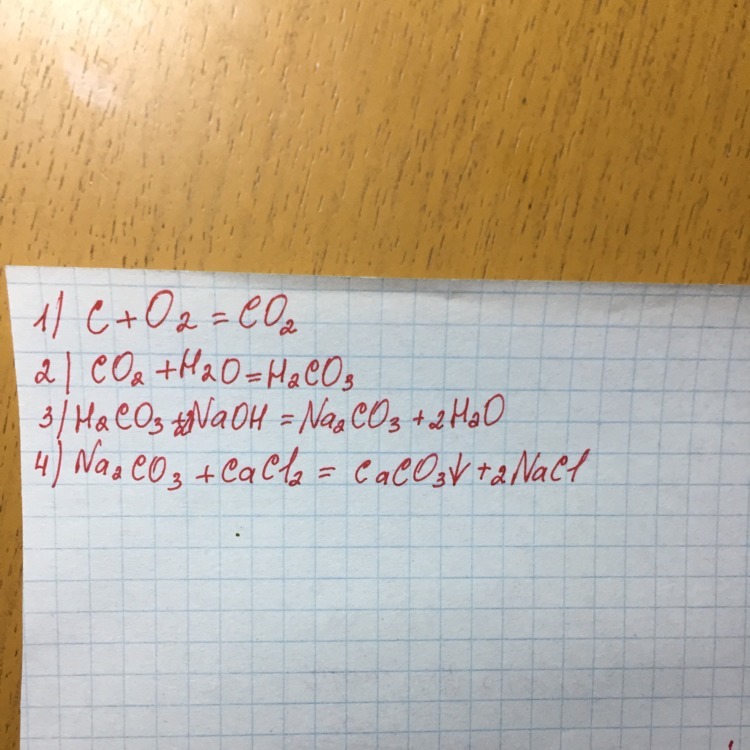 1) C + O₂ = CO₂
2) CO₂ + H₂O = H₂CO₃
3) H₂CO₃ + 2NaOH = Na₂CO₃ + 2H₂O
4) Na₂CO₃ + CaCl₂ = CaCO₃↓ + 2NaCl